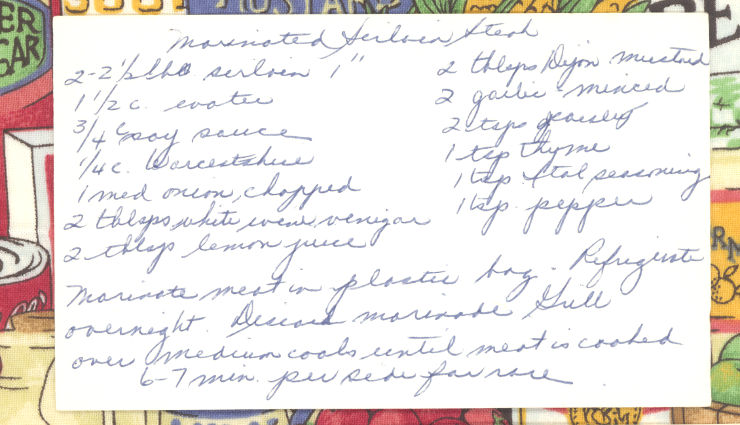 MUSTAN
ER
GAR
Marinated Sirloin Steak
2-2 1/2 lbs sirloin 1"
1 1/2 c. water
3/4 c soy sauce
1/4 c. Worcestshire
1 med onion, chopped
2 tblsps white wine venigar
2 tblsp lemon juice
2 tblsps Dijon mustard
2 garlic minced
2 tsps parsley
1 tsp thyme
1 tsp Ital seasoning
1 tsp. pepper
Marinate meat in plastic bag. Refrigerate
overnight. Discard marinade Grill
over medium coals until meat is cooked
6-7 min. per side for rare